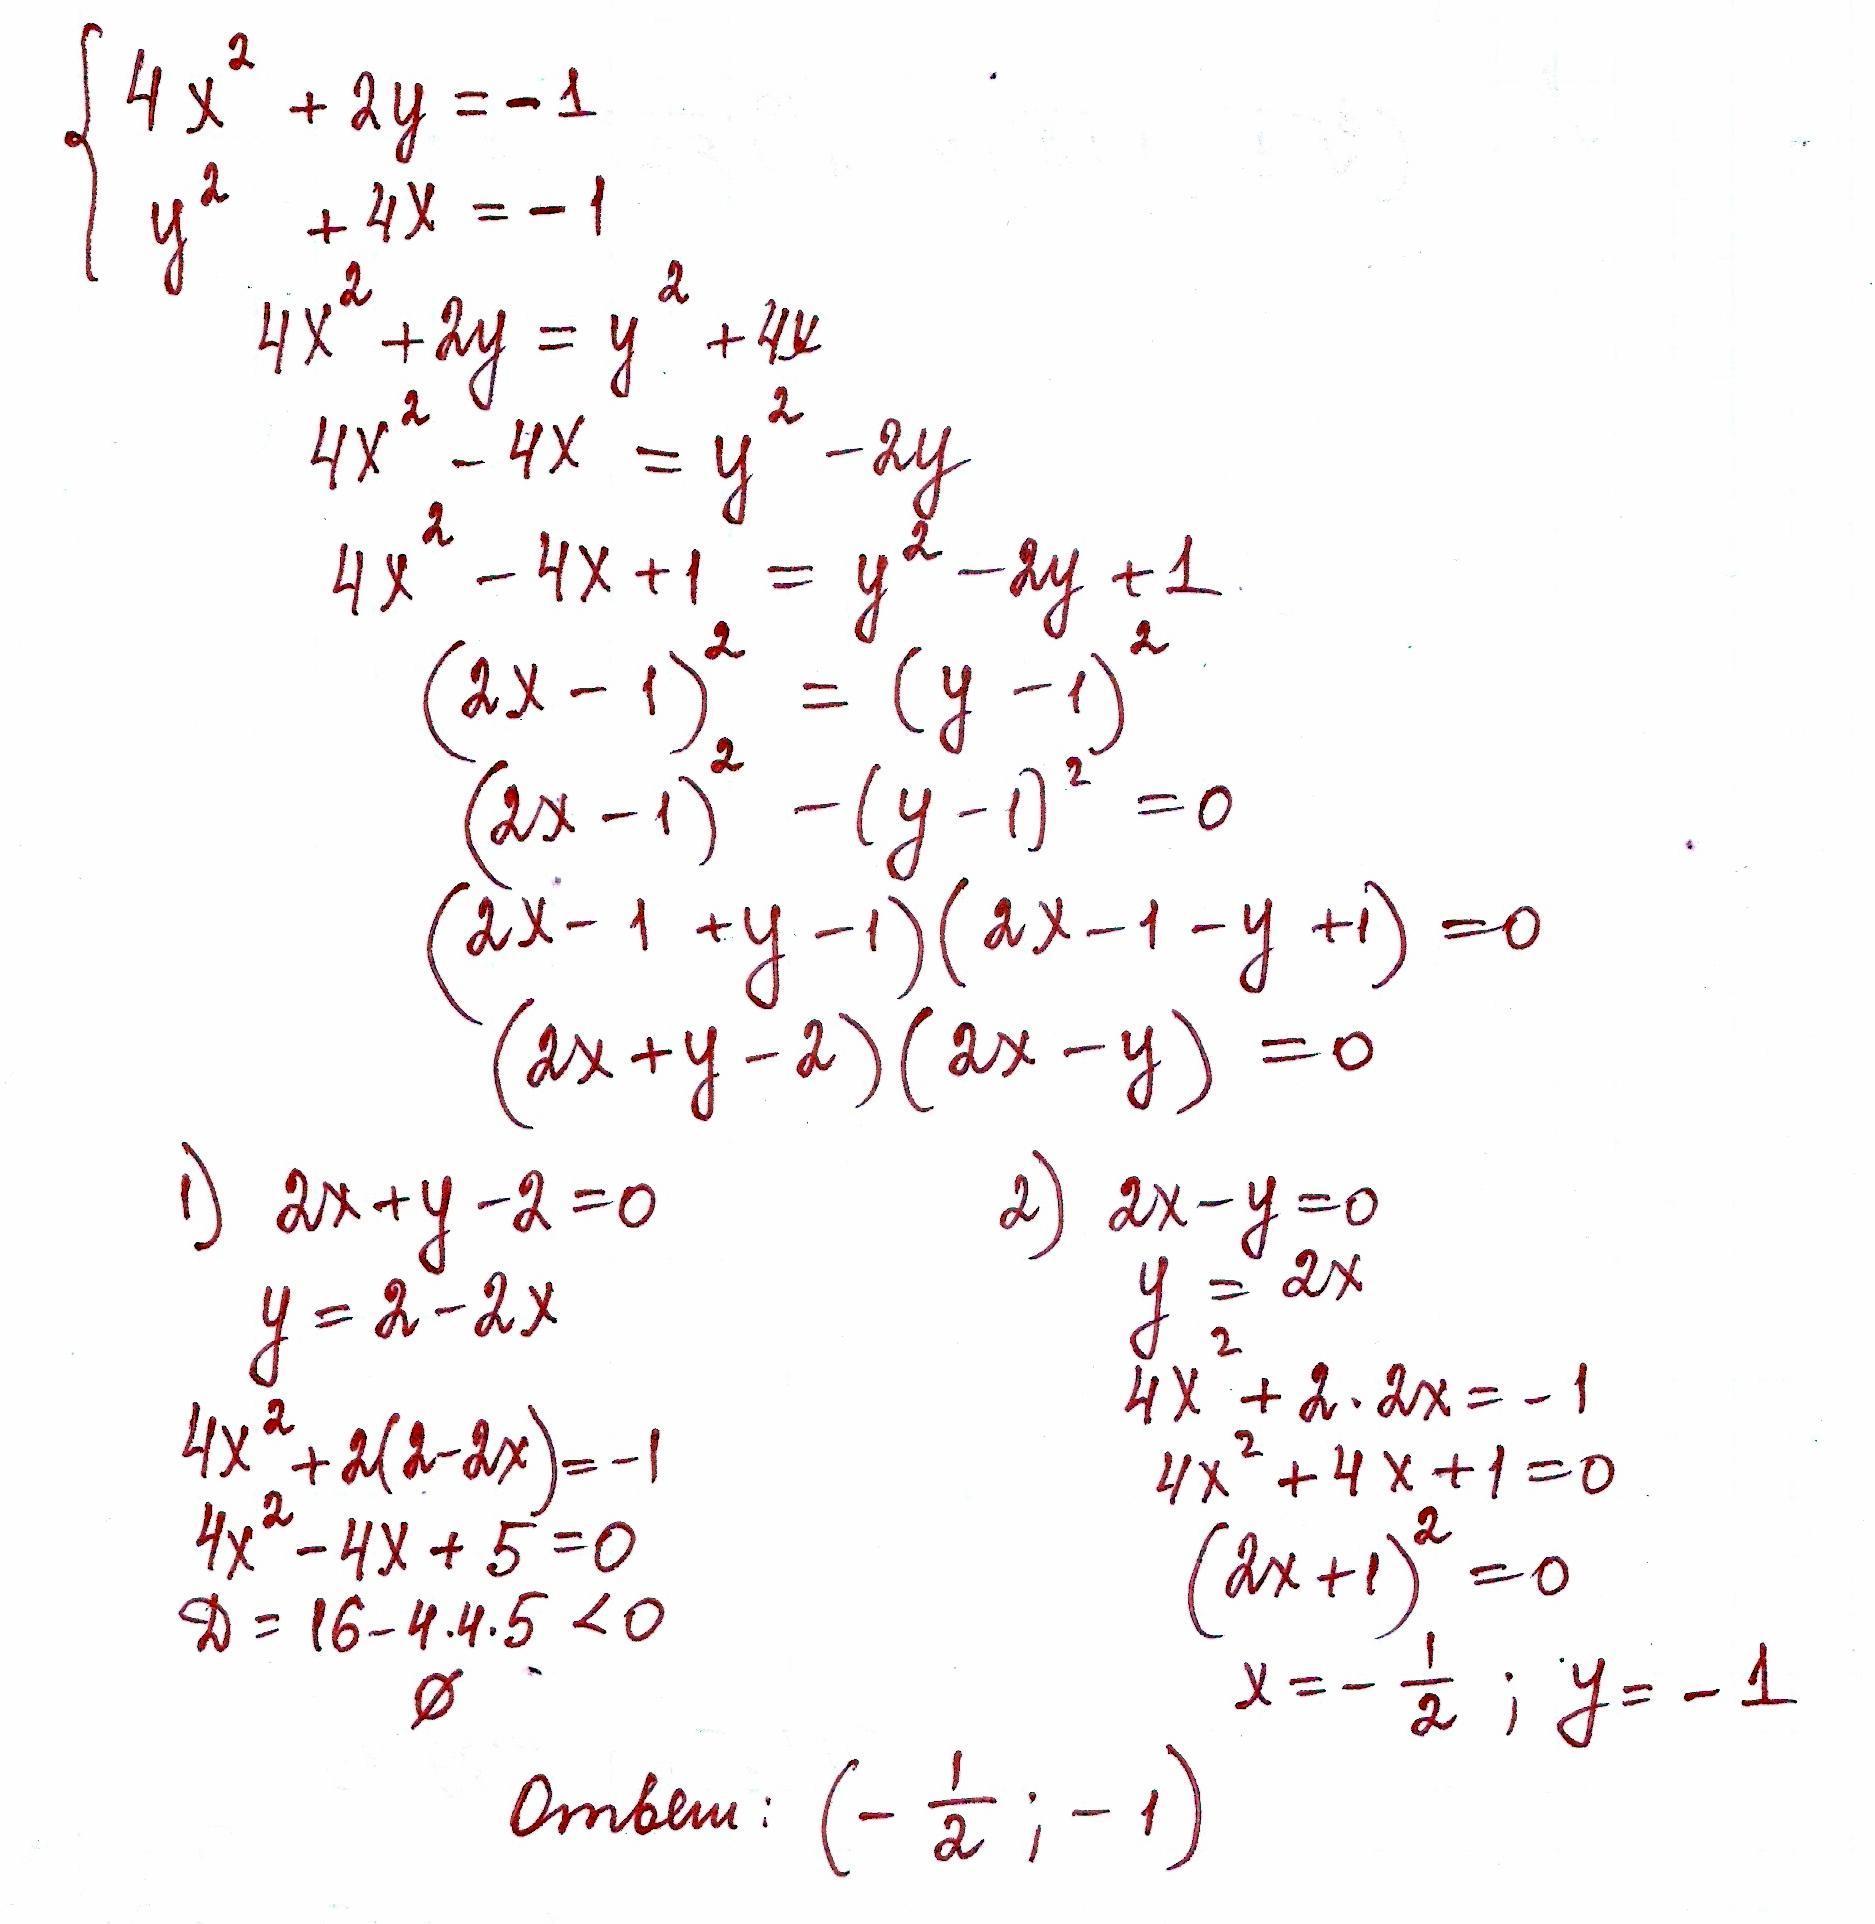 4x² + 2y = -1
y² + 4x = -1
4x² + 2y = y² + 4x
4x² - 4x = y² - 2y
4x² - 4x + 1 = y² - 2y + 1
(2x - 1)² = (y - 1)²
(2x - 1)² - (y - 1)² = 0
(2x - 1 + y - 1)(2x - 1 - y + 1) = 0
(2x + y - 2)(2x - y) = 0
1) 2x + y - 2 = 0
y = 2 - 2x
4x² + 2(2 - 2x) = -1
4x² - 4x + 5 = 0
D = 16 - 4·4·5 < 0
∅
2) 2x - y = 0
y = 2x
4x² + 2·2x = -1
4x² + 4x + 1 = 0
(2x + 1)² = 0
x = -1/2 ; y = -1
Ответ: (-1/2 ; -1)